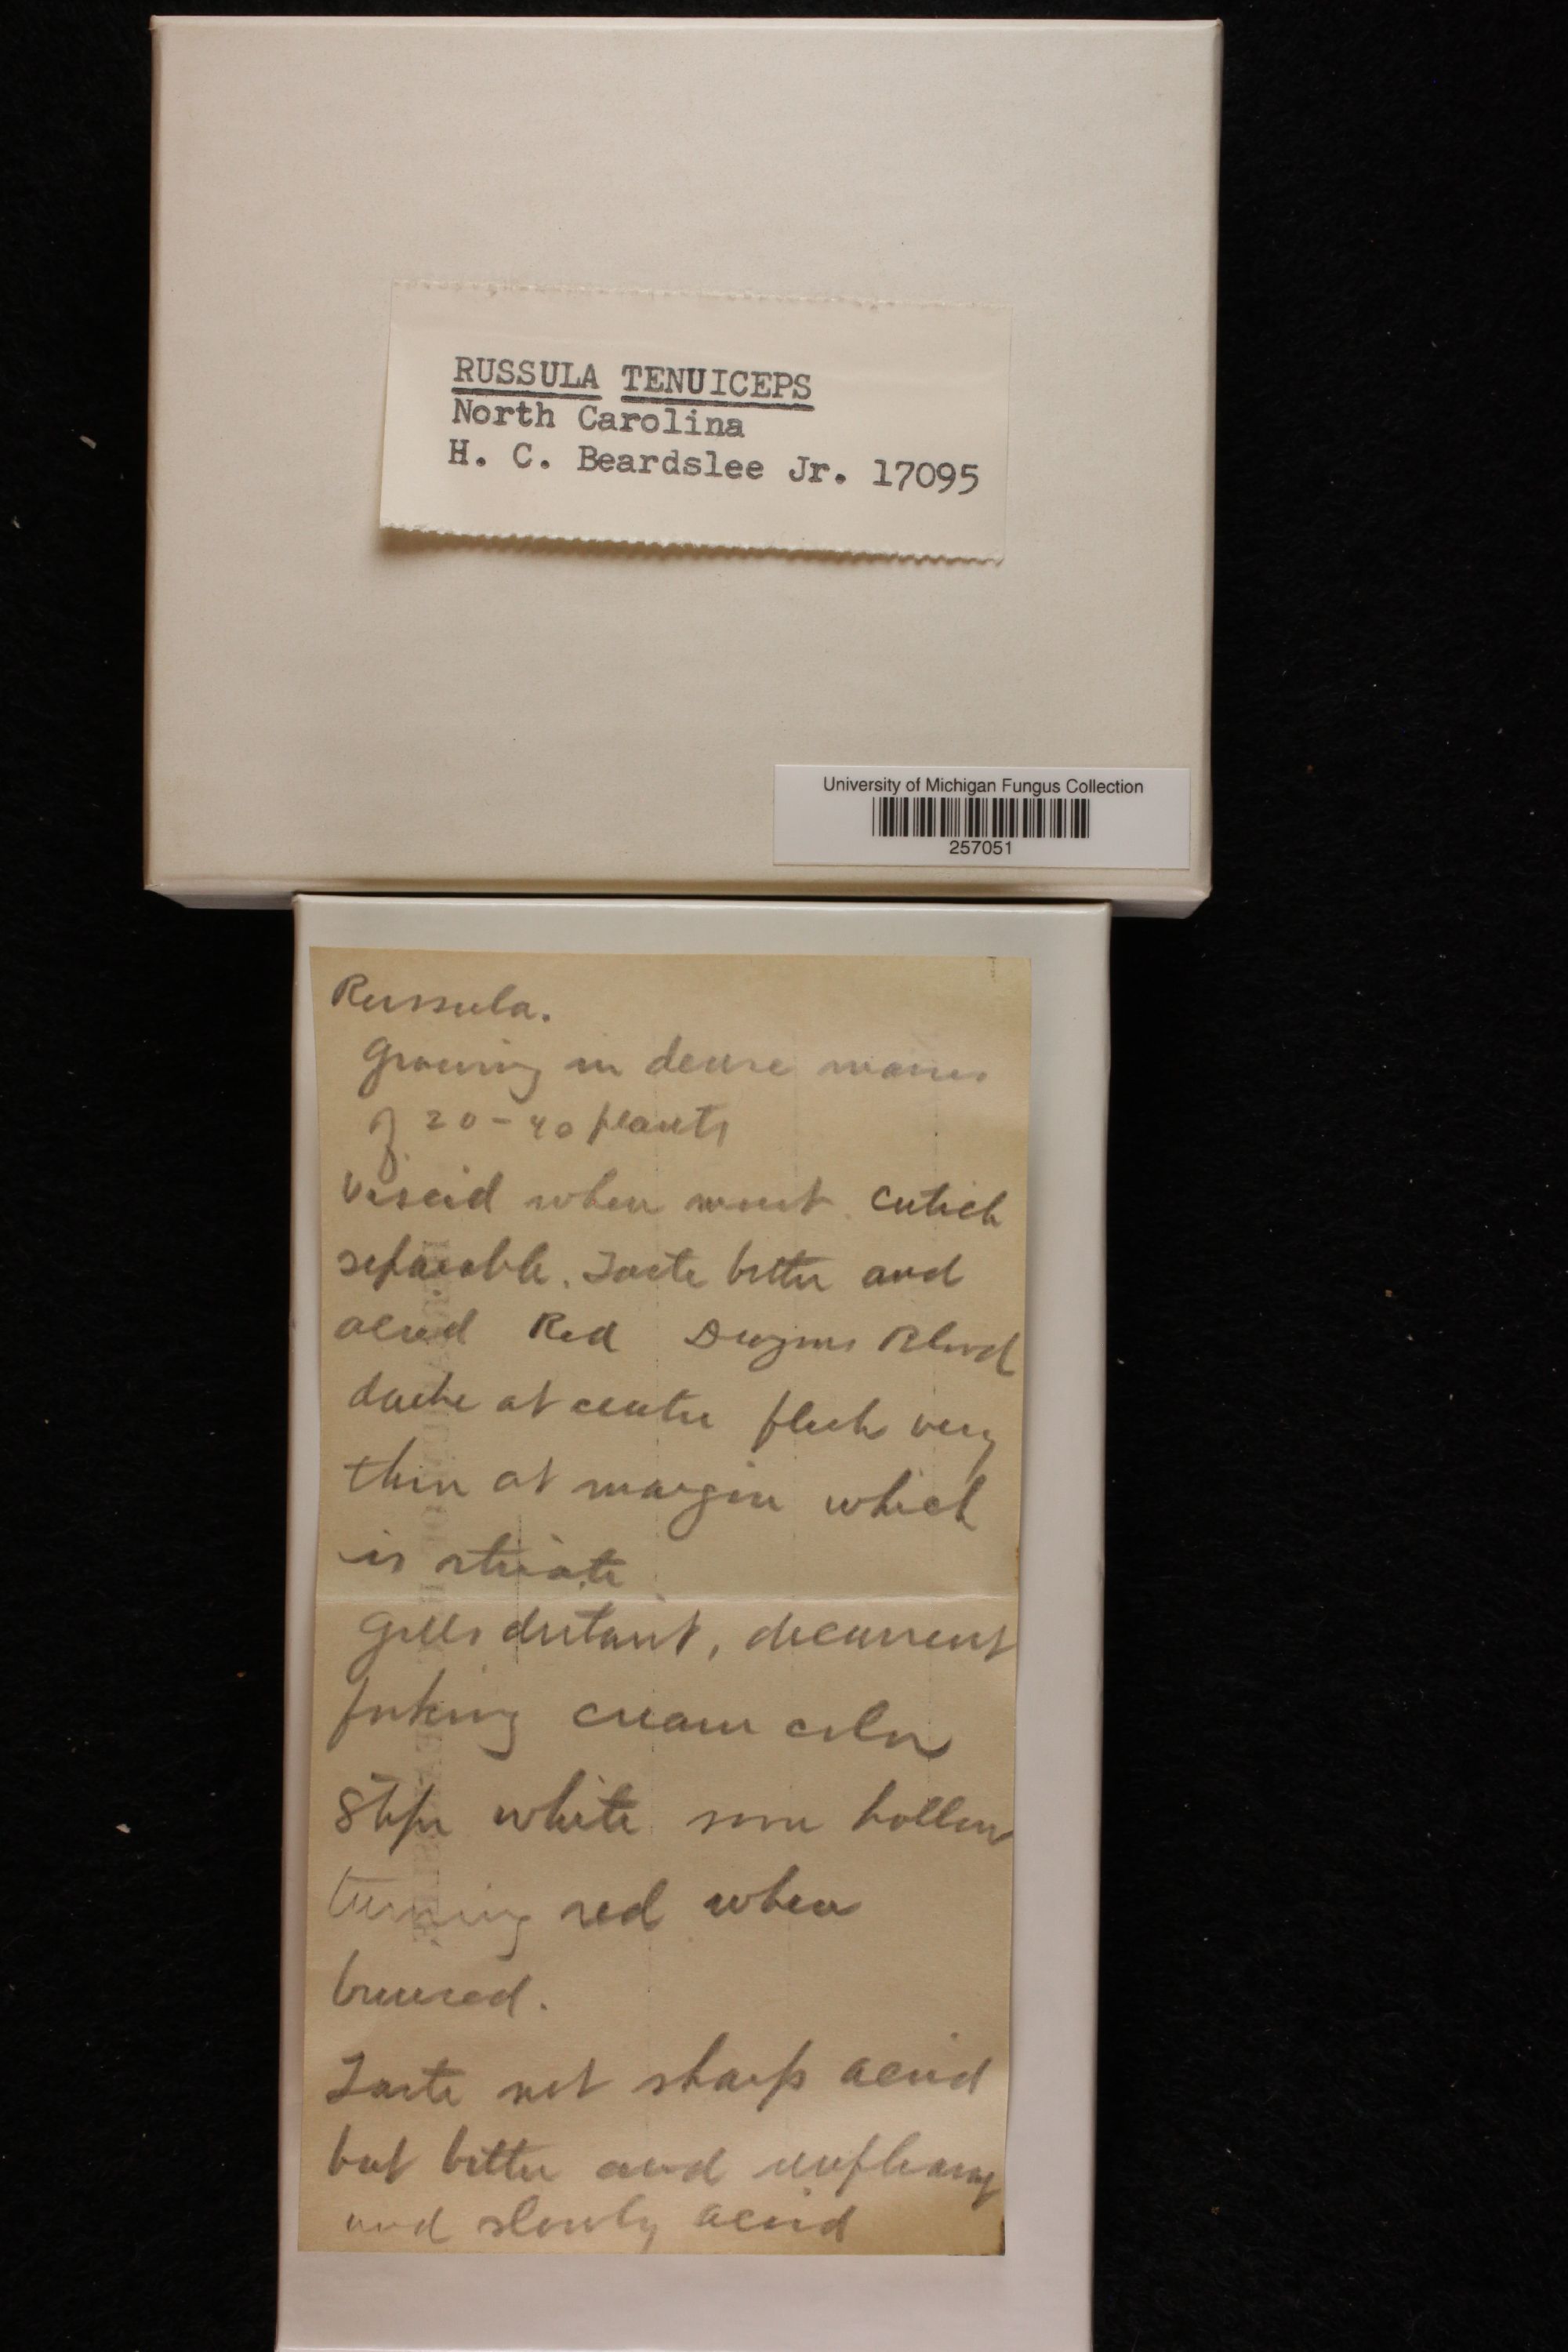 RUSSULA TENUICEPS
North Carolina
H. C. Beardslee Jr. 17095
University of Michigan Fungus Collection
257051
Russula.
Growing in dense masses
of 20-40 plants
Viscid when moist. Cuticle
separable. Taste bitter and
acrid Red Dragons Blood
darker at center flesh very
thin at margin which
is striate
Gills distant, decurrent
forking cream color
Stipe white soon hollow
turning red when
bruised.
Taste not sharp acrid
but bitter and
and slowly acrid